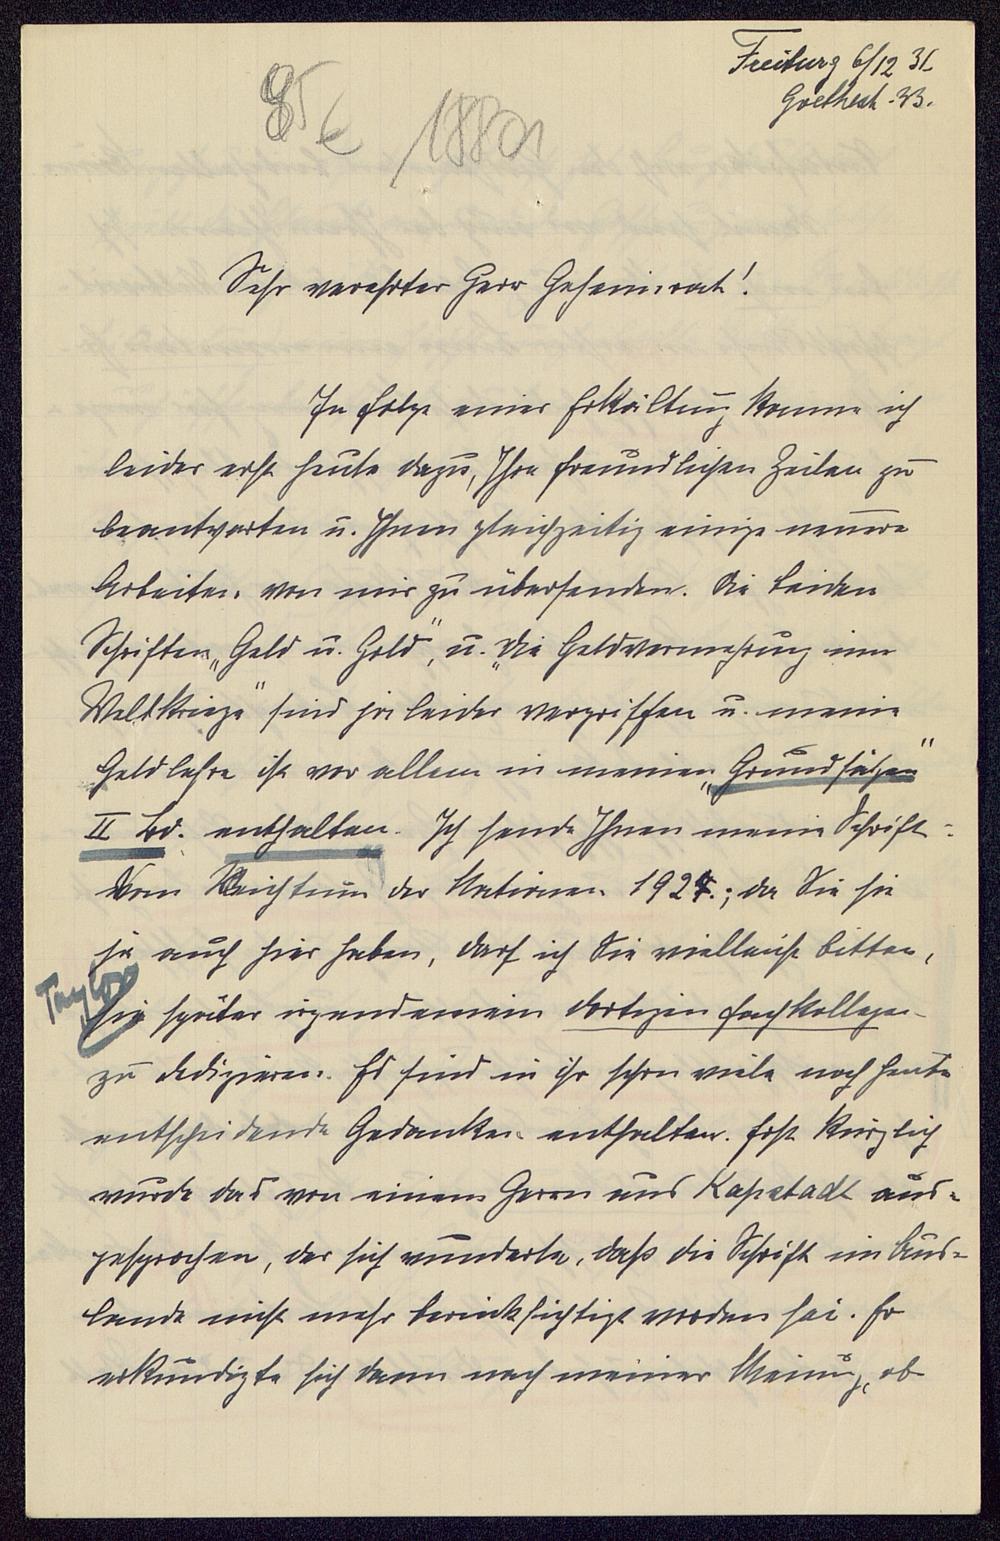 Freiburg 6/12 31
Goethestr. 33.
85 €
Sehr verehrter Herr Geheimrat!
In Folge einer Erkältung komme ich
leider erst heute dazu, Ihre freundlichen Zeilen zu
beantworten u. Ihnen gleichzeitig einige neuere
Arbeiten von mir zu übersenden. Die beiden
Schriften „Geld u. Gold", u. „Die Geldvermehrung im
Weltkriege" sind ja leider vergriffen u. meine
Geldlehre ist vor allem in meinen „Grundsätzen"
II Bd. enthalten. Ich sende Ihnen meine Schrift:
Vom Reichtum der Nationen 1925.; da Sie sie
ja auch hier haben, darf ich Sie vielleicht bitten,
sie später irgendeinem dortigen Fachkollegen
zu dedizieren. Es sind in ihr schon viele noch heute
entscheidende Gedanken enthalten. Erst kürzlich
wurde das von einem Herrn aus Kapstadt aus-
gesprochen, der sich wunderte, daß die Schrift im Aus-
lande nicht mehr berücksichtigt worden sei. Er
erkundigte sich dann nach meiner Meinung, ob